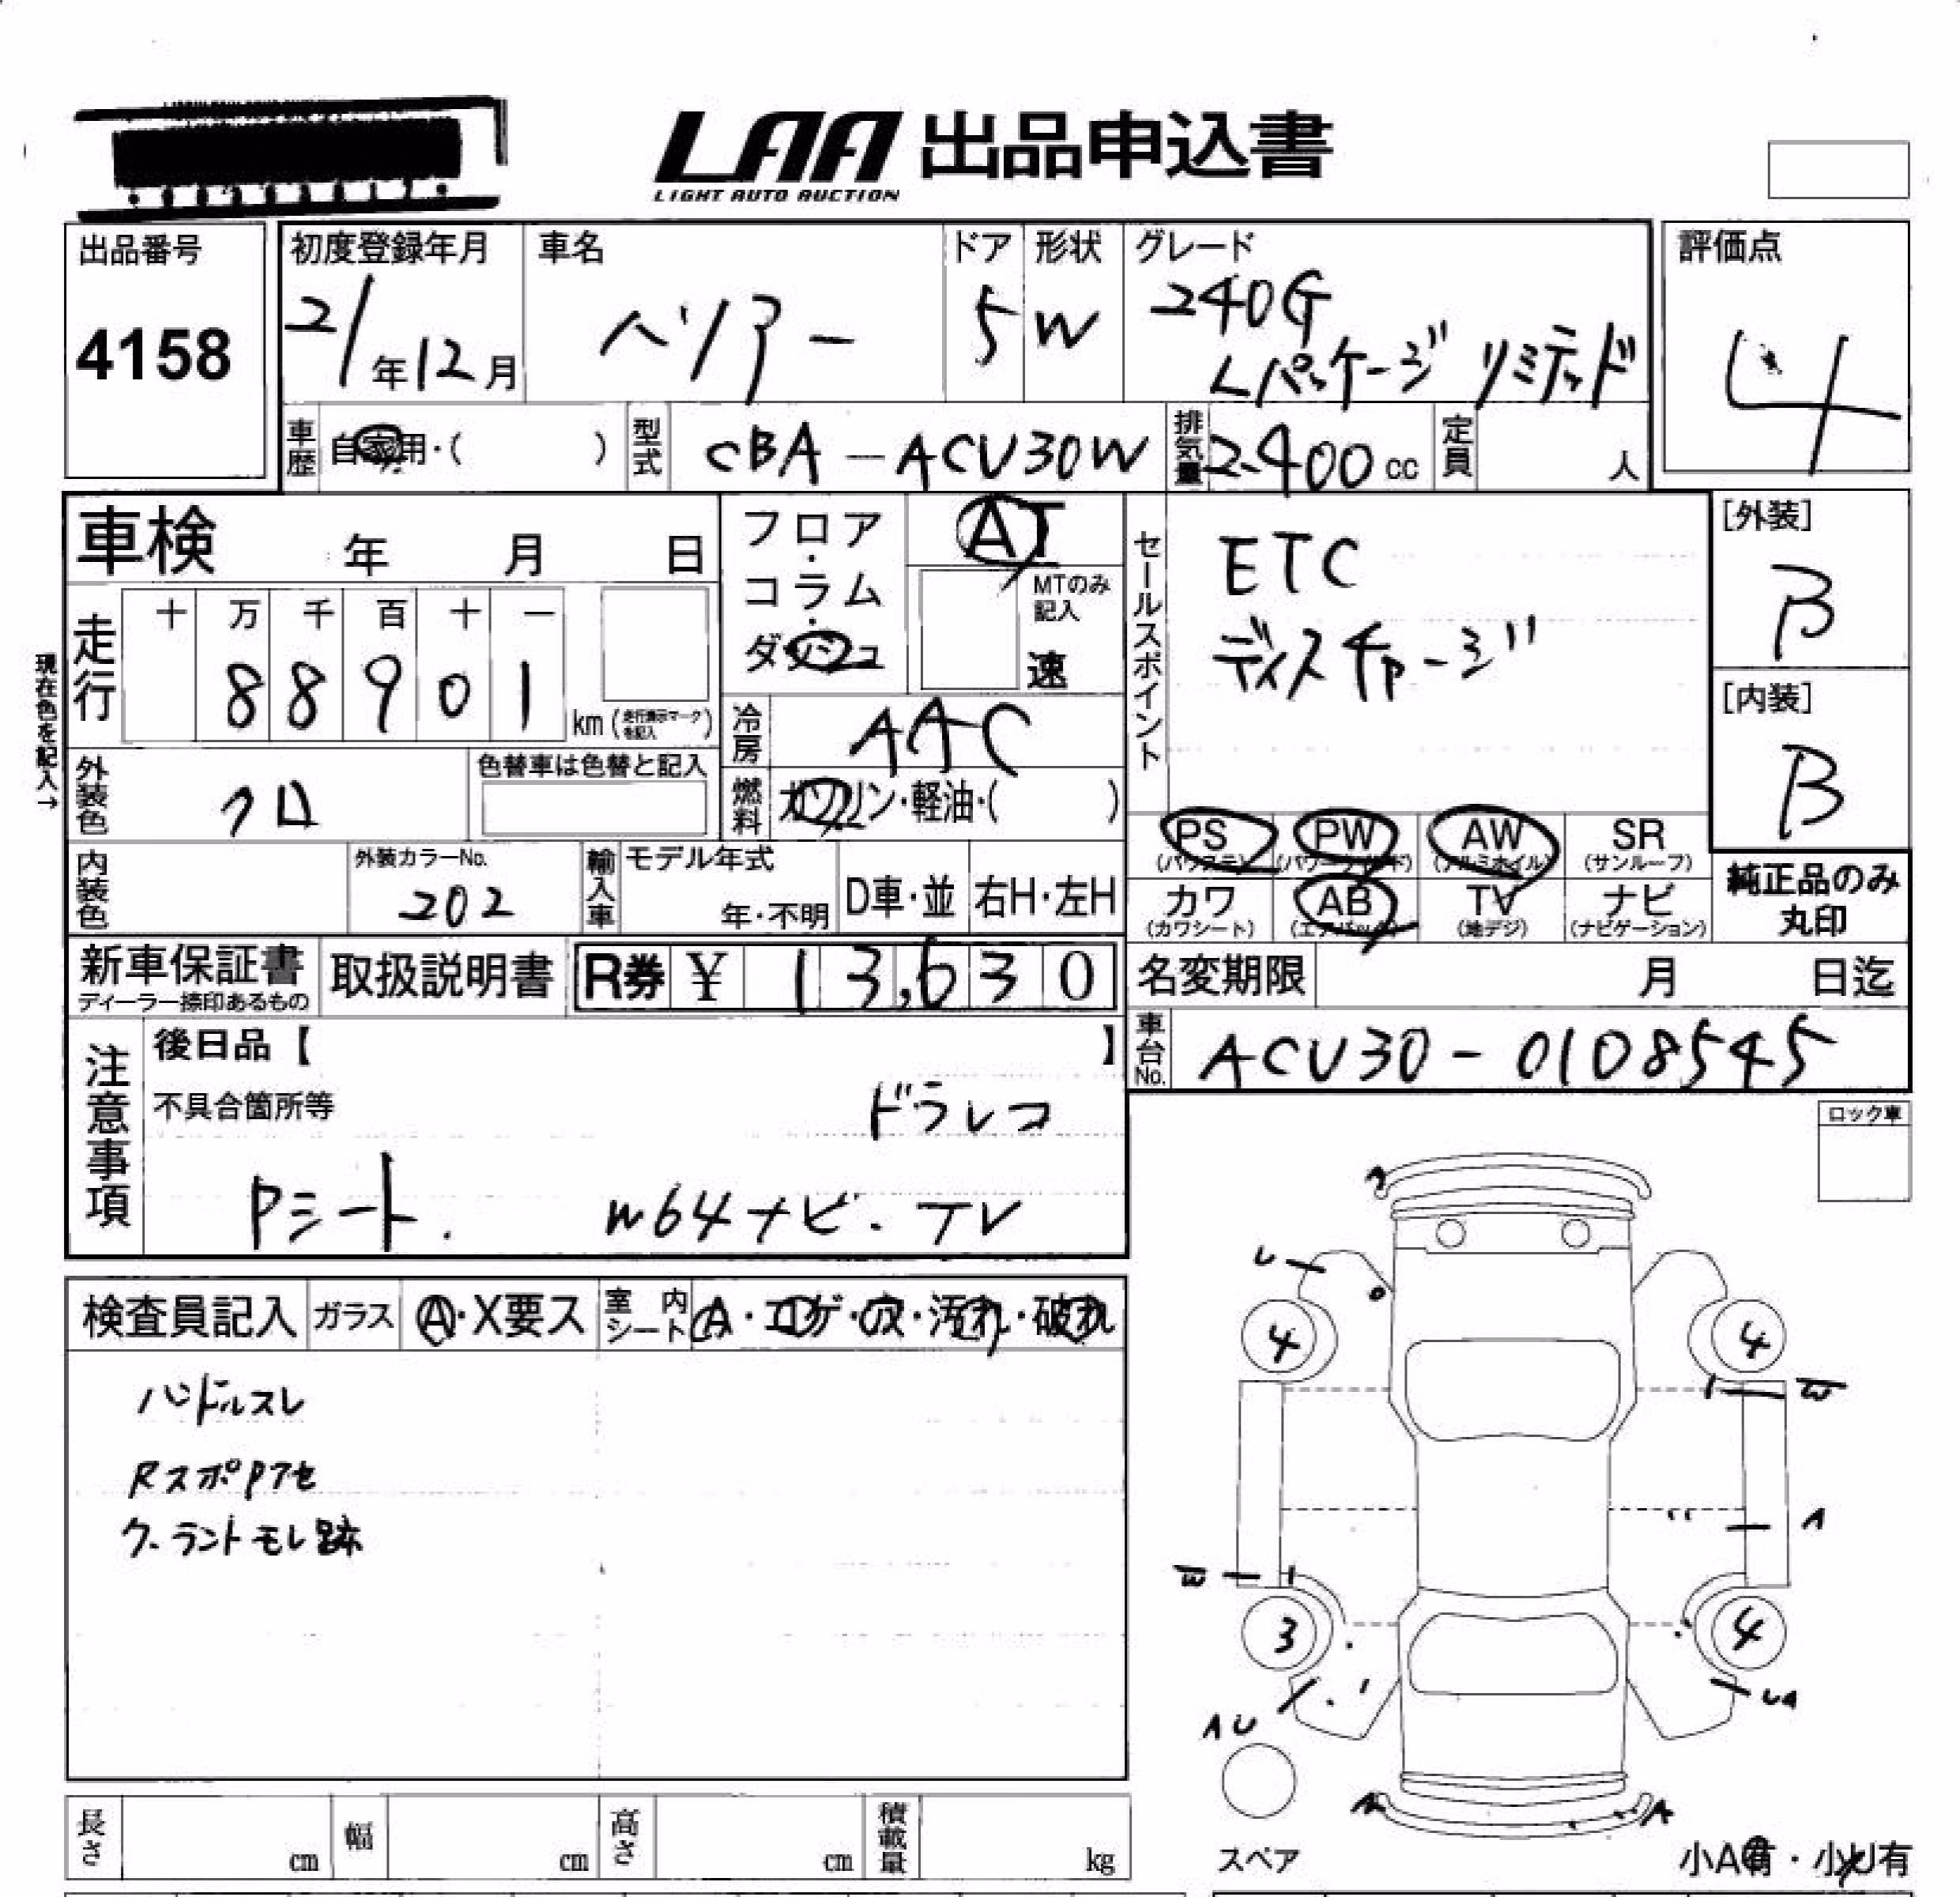 LAA 出品申込書
LIGHT AUTO AUCTION
出品番号
4158
初度登録年月
21年12月
車名
ハリアー
ドア
5
形状
W
グレード
240G
Lパッケージ リミテッド
評価点
4
車歴 自家用・( )
型式 CBA-ACU30W
排気量 2400cc
定員 人
車検 年 月 日
フロア・コラム・ダッシュ
AT
MTのみ記入
速
セールスポイント
ETC
ディスチャージ
[外装]
B
[内装]
B
現在色を記入→
走行
十 万 千 百 十 一
8 8 9 0 1 km (走行表示マークを記入)
冷房 AAC
燃料 ガソリン・軽油・( )
外装色 クロ
色替車は色替と記入
内装色
外装カラーNo.
202
輸入車
モデル年式
年・不明
D車・並
右H・左H
PS (パワステ)
PW (パワーウィンド)
AW (アルミホイル)
SR (サンルーフ)
カワ (カワシート)
AB (エアバック)
TV (地デジ)
ナビ (ナビゲーション)
純正品のみ
丸印
新車保証書
ディーラー捺印あるもの
取扱説明書
R券 ¥ 13,630
名変期限 月 日迄
車台No. ACU30-0108545
注意事項
後日品【 】
不具合箇所等
ドラレコ
Pシート. W64ナビ・TV
ロック車
検査員記入
ガラス A・X要ス
室内シート A・コゲ・穴・汚れ・破れ
ハンドルスレ
RスポPアセ
クーラントモレ跡
U
4 4
W
A
W
3 4
AU
UA
A
スペア
小A有・小U有
長さ cm
幅 cm
高さ cm
積載量 kg